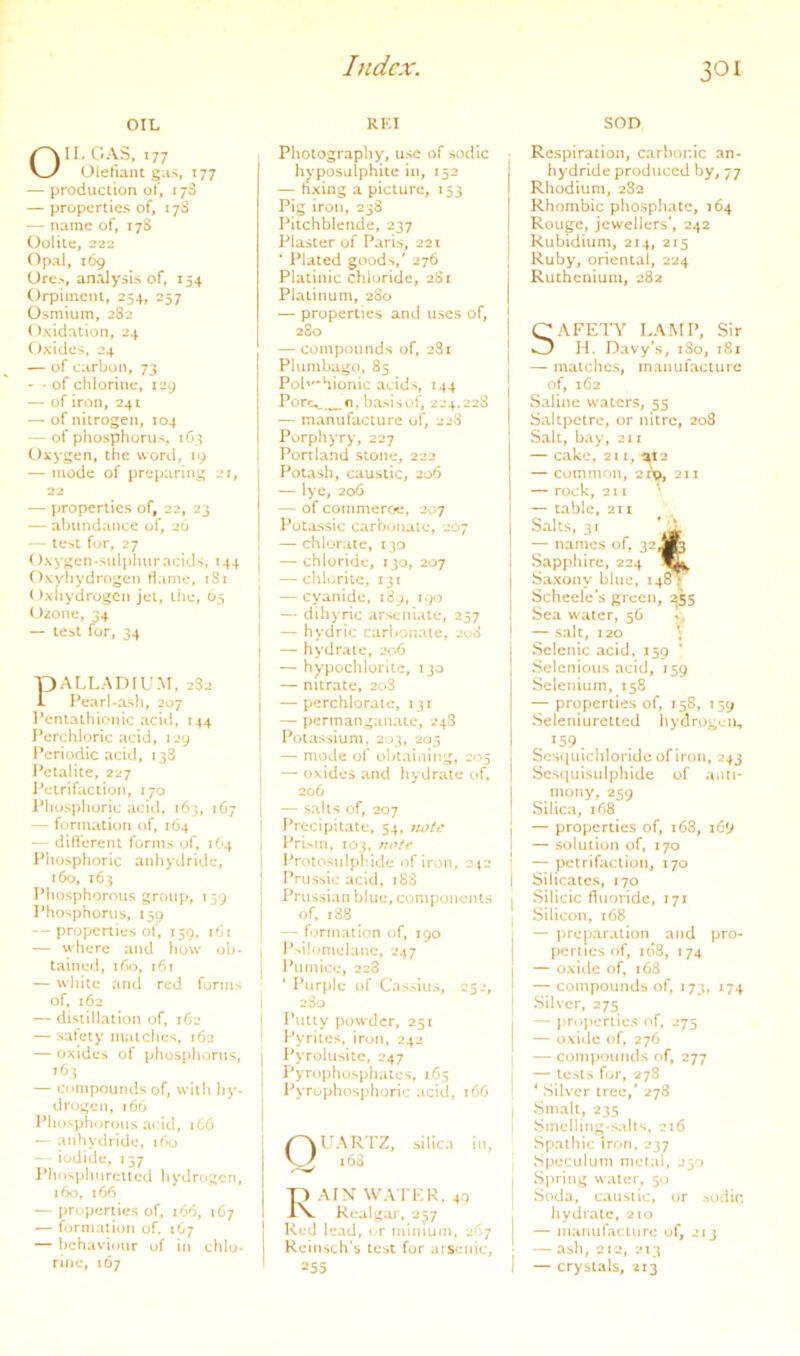 Index.
301
OIL
OIL GAS, 177
Olefiant gas, 177
— production of, 178
— properties of, 178
— name of, 178
Oolite, 222
Opal, 169
Ores, analysis of, 154
Orpiment, 254, 257
Osmium, 282
Oxidation, 24
Oxides, 24
— of carbon, 73
— of chlorine, 129
— of iron, 241
— of nitrogen, 104
— of phosphorus, 163
Oxygen, the word, 19
— mode of preparing 21,
22
— properties of, 22, 23
— abundance of, 26
— test for, 27
Oxygen-sulphur acids, 144
Oxyhydrogen flame, 181
Oxhydrogen jet, the, 65
Ozone, 34
— test for, 34
PALLADIUM, 282
Pearl-ash, 207
Pentathionic acid, 144
Perchloric acid, 129
Periodic acid, 138
Petalite, 227
Petrifaction, 170
Phosphoric acid, 163, 167
— formation of, 164
— different forms of, 164
Phosphoric anhydride,
160, 163
Phosphorous group, 159
Phosphorus, 159
— properties of, 159, 161
— where and how ob-
tained, 160, 161
— white and red forms
of, 162
— distillation of, 162
— safety matches, 162
— oxides of phosphorus,
163
— compounds of, with hy-
drogen, 166
Phosphorous acid, 166
— anhydride, 160
— iodide, 137
Phosphuretted hydrogen,
160, 166
— properties of, 166, 167
— formation of, 167
— behaviour of in chlo-
rine, 167
REI
Photography, use of sodic
hyposulphite in, 152
— fixing a picture, 153
Pig iron, 238
Pitchblende, 237
Plaster of Paris, 221
‘ Plated goods,’ 276
Platinic chloride, 281
Platinum, 280
— properties and uses of,
280
— compounds of, 281
Plumbago, 85
hionic acids, 144
basis of, 224, 228
— manufacture of, 228
Porphyry, 227
Portland stone, 222
Potash, caustic, 206
— lye, 206
— of commerce, 207
Potassic carbonate, 207
— chlorate, 130
— chloride, 130, 207
— chlorite, 131
— cyanide, 189, 190
— dihyric arseniate, 257
— hydric carbonate, 208
— hydrate, 206
— hypochlorite, 130
— nitrate, 208
— perchlorate, 131
— permanganate, 248
Potassium, 203, 205
— mode of obtaining, 205
— oxides and hydrate of,
206
— salts of, 207
Precipitate, 54, note
Prism, 103, note
Protosulphide of iron, 242
Prussic acid, 188
Prussian blue, components
of, 188
— formation of, 190
Psilomelane, 247
Pumice, 228
‘ Purple of Cassius, 252,
280
Putty powder, 251
Pyrites, iron, 242
Pyrolusite, 247
Pyrophosphates, 165
Pyrophosphoric acid, 166
QUARTZ, silica in,
168
RAIN WATER, 49
Realgar, 257
Red lead, or minium, 267
Reinsch's test for arsenic,
255
SOD
Respiration, carbonic an-
hydride produced by, 77
Rhodium, 282
Rhombic phosphate, 164
Rouge, jewellers', 242
Rubidium, 214, 215
Ruby, oriental, 224
Ruthenium, 282
SAFETY LAMP, Sir
H. Davy's, 180, 181
— matches, manufacture
of, 162
Saline waters, 55
Saltpetre, or nitre, 208
Salt, bay, 211
— cake, 211, 212
— common, 210, 211
— rock, 211
— table, 211
Salts, 31
— names of, 32,
Sapphire, 224
Saxony blue, 148
Scheele's green, 255
Sea water, 56
— salt, 120
Selenic acid, 159
Selenious acid, 159
Selenium, 158
— properties of, 158, 159
Seleniuretted hydrogen,
159
Sesquichloride of iron, 243
Sesquisulphide of anti-
mony, 259
Silica, 168
— properties of, 168, 169
— solution of, 170
— petrifaction, 170
Silicates, 170
Silicic fluoride, 171
Silicon, 168
— preparation and pro-
perties of, 168, 174
— oxide of, 168
— compounds of, 173, 174
Silver, 275
— properties of, 275
— oxide of, 276
— compounds of, 277
— tests for, 278
‘ Silver tree,’ 278
Smalt, 235
Smelling-salts, 216
Spathic iron, 237
Speculum metal, 250
Spring water, 50
Soda, caustic, or sodic
hydrate, 210
— manufacture of, 213
— ash, 212, 213
— crystals, 213